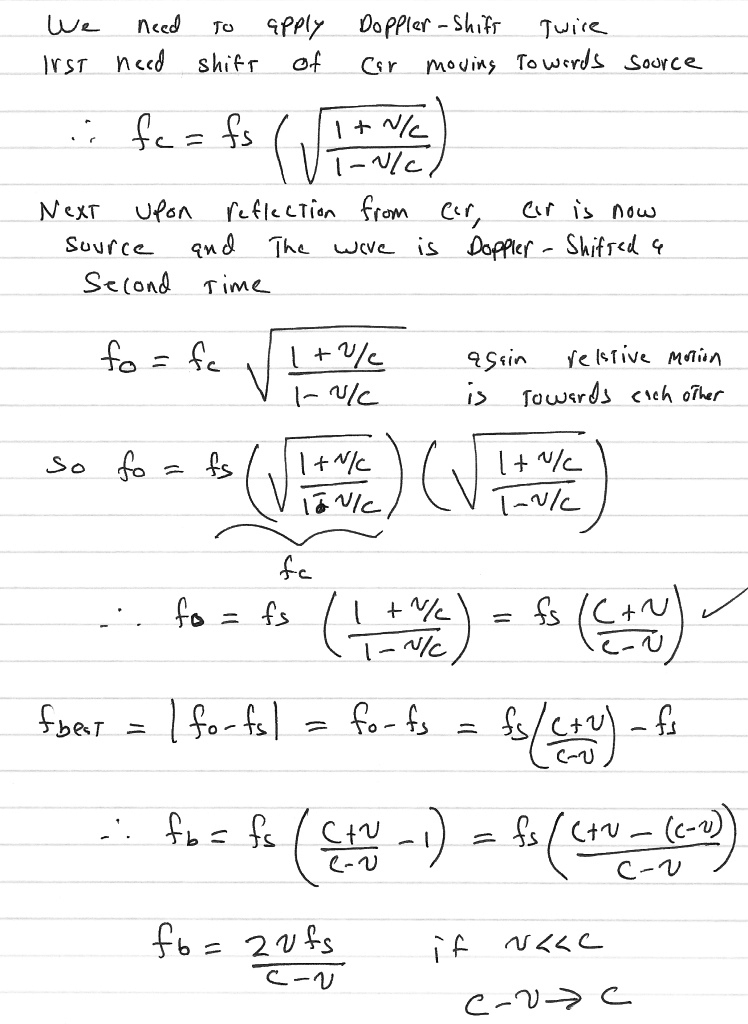 We need to apply Doppler-Shift Twice
1rst need shift of car moving Towards source
∴ fc = fs (√((1 + v/c)/(1 - v/c)))
Next upon reflection from car, car is now
source and The wave is Doppler-Shifted a
Second Time
fo = fc √((1 + v/c)/(1 - v/c)) again relative motion
is towards each other
so fo = fs (√((1 + v/c)/(1 - v/c))) (√((1 + v/c)/(1 - v/c)))
fc
∴ fo = fs ((1 + v/c)/(1 - v/c)) = fs ((c+v)/(c-v)) ✓
fbeat = |fo-fs| = fo-fs = fs((c+v)/(c-v)) - fs
∴ fb = fs ((c+v)/(c-v) - 1) = fs ((c+v - (c-v))/(c-v))
fb = 2vfs/(c-v) if v<<c
c-v→c